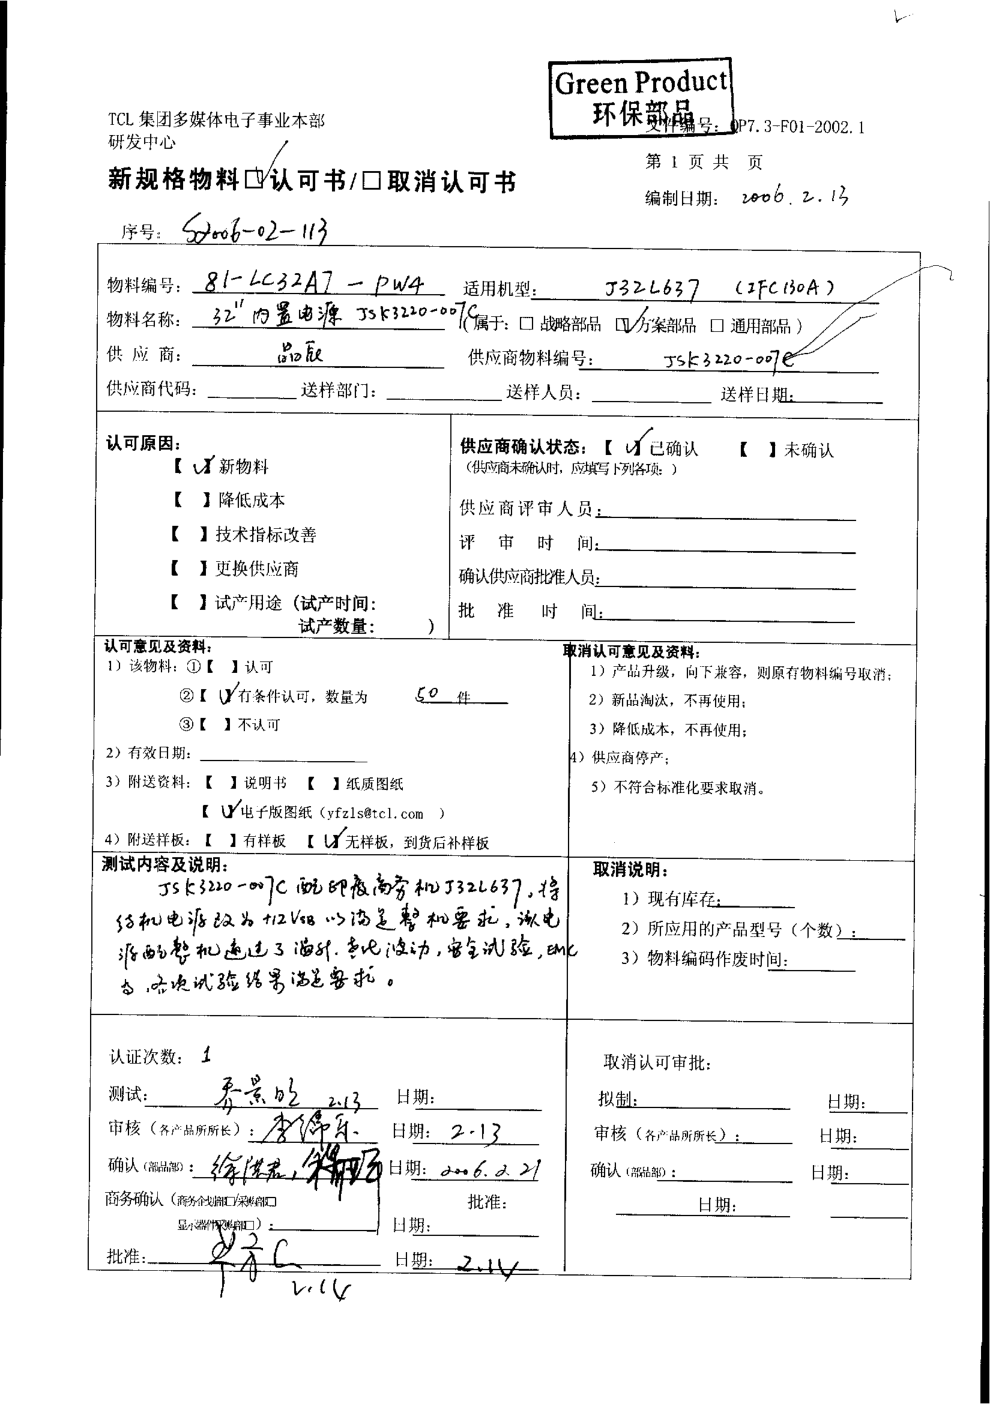 Green Product
环保部品
TCL 集团多媒体电子事业本部
研发中心
文件编号：QP7.3-F01-2002.1
第 1 页 共 页
新规格物料☑认可书/□取消认可书
编制日期： 2006.2.13
序号： S2006-02-113
物料编号： 81-LC32A7-PW4 适用机型： J32L637 (IFC130A)
物料名称： 32"内置电源 JSK3220-007C（属于：□ 战略部品 ☑方案部品 □ 通用部品）
供 应 商： 供应商物料编号： JSK3220-007C
供应商代码： 送样部门： 送样人员： 送样日期：
认可原因：
【√】新物料
【 】降低成本
【 】技术指标改善
【 】更换供应商
【 】试产用途（试产时间：
试产数量： ）
供应商确认状态：【√】已确认 【 】未确认
（供应商未确认时，应填写下列各项：）
供应商评审人员：
评 审 时 间：
确认供应商批准人员：
批 准 时 间：
认可意见及资料：
1）该物料：①【 】认可
②【√】有条件认可，数量为 50 件
③【 】不认可
2）有效日期：
3）附送资料：【 】说明书 【 】纸质图纸
【√】电子版图纸（yfzls@tcl.com ）
4）附送样板：【 】有样板 【√】无样板，到货后补样板
取消认可意见及资料：
1）产品升级，向下兼容，则原有物料编号取消；
2）新品淘汰，不再使用；
3）降低成本，不再使用；
4）供应商停产；
5）不符合标准化要求取消。
测试内容及说明：
JSK3220-007C 配印度商务机J32L637，将
待机电源改为+12VSB以满足整机要求，该电
源配整机通过了温升、波动，安全试验，EMC
各项试验结果满足要求。
取消说明：
1）现有库存：
2）所应用的产品型号（个数）：
3）物料编码作废时间：
认证次数： 1
测试： 乔景明 2.13 日期：
审核（各产品所所长）： 李锦乐 日期： 2-13
确认（部品部）： 徐洪君， 日期： 2006.2.21
商务确认（商务企划部□/采购部□ 批准：
显示器件采购部□）： 日期：
批准： 2.14 日期： 2.14
取消认可审批：
拟制： 日期：
审核（各产品所所长）： 日期：
确认（部品部）： 日期：
日期：